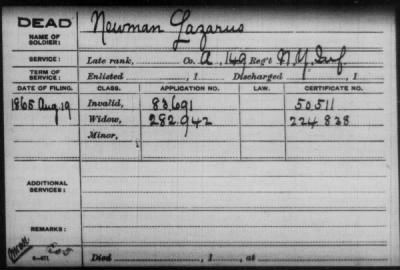 DEAD Newman Lazarus
NAME OF SOLDIER:
SERVICE: Late rank, Co. A, 149 Reg't N.Y. Inf.
TERM OF SERVICE: Enlisted , 1 Discharged , 1
DATE OF FILING. CLASS. APPLICATION NO. LAW. CERTIFICATE NO.
1865 Aug. 19 Invalid, 83,691 50511
Widow, 282.942 224838
Minor,
ADDITIONAL SERVICES:
REMARKS:
Died , 1 , at